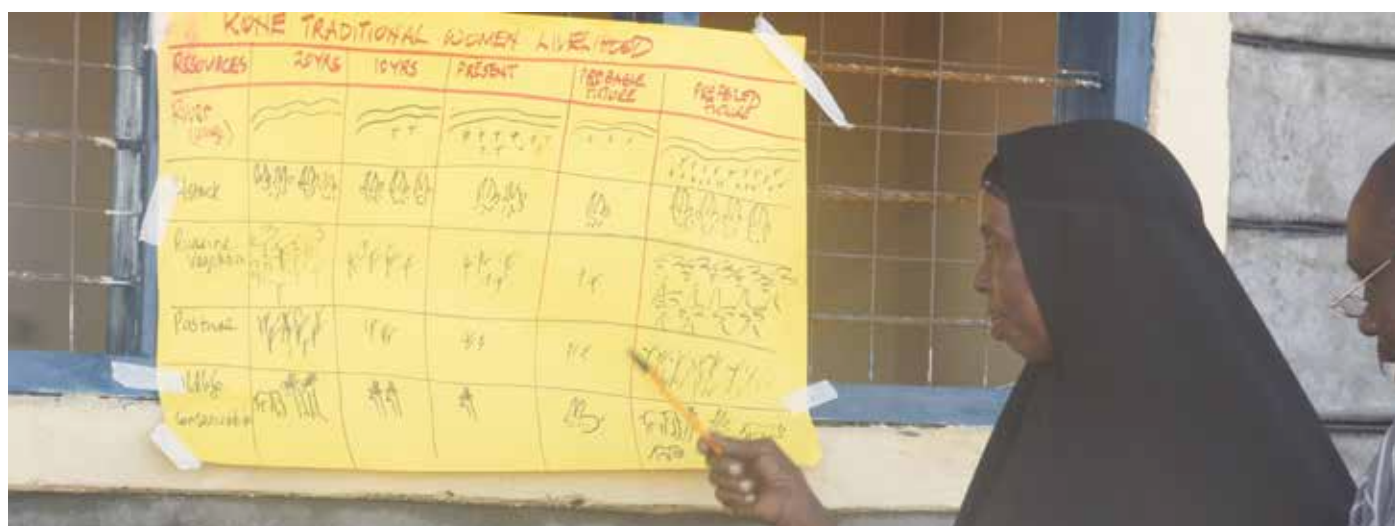 KONE TRADITIONAL WOMEN LIVELIHOOD
RESOURCES 20YRS 10YRS PRESENT PROBABLE FUTURE PREFERED FUTURE
River
Riverine
Vegetation
Pasture
Conservation